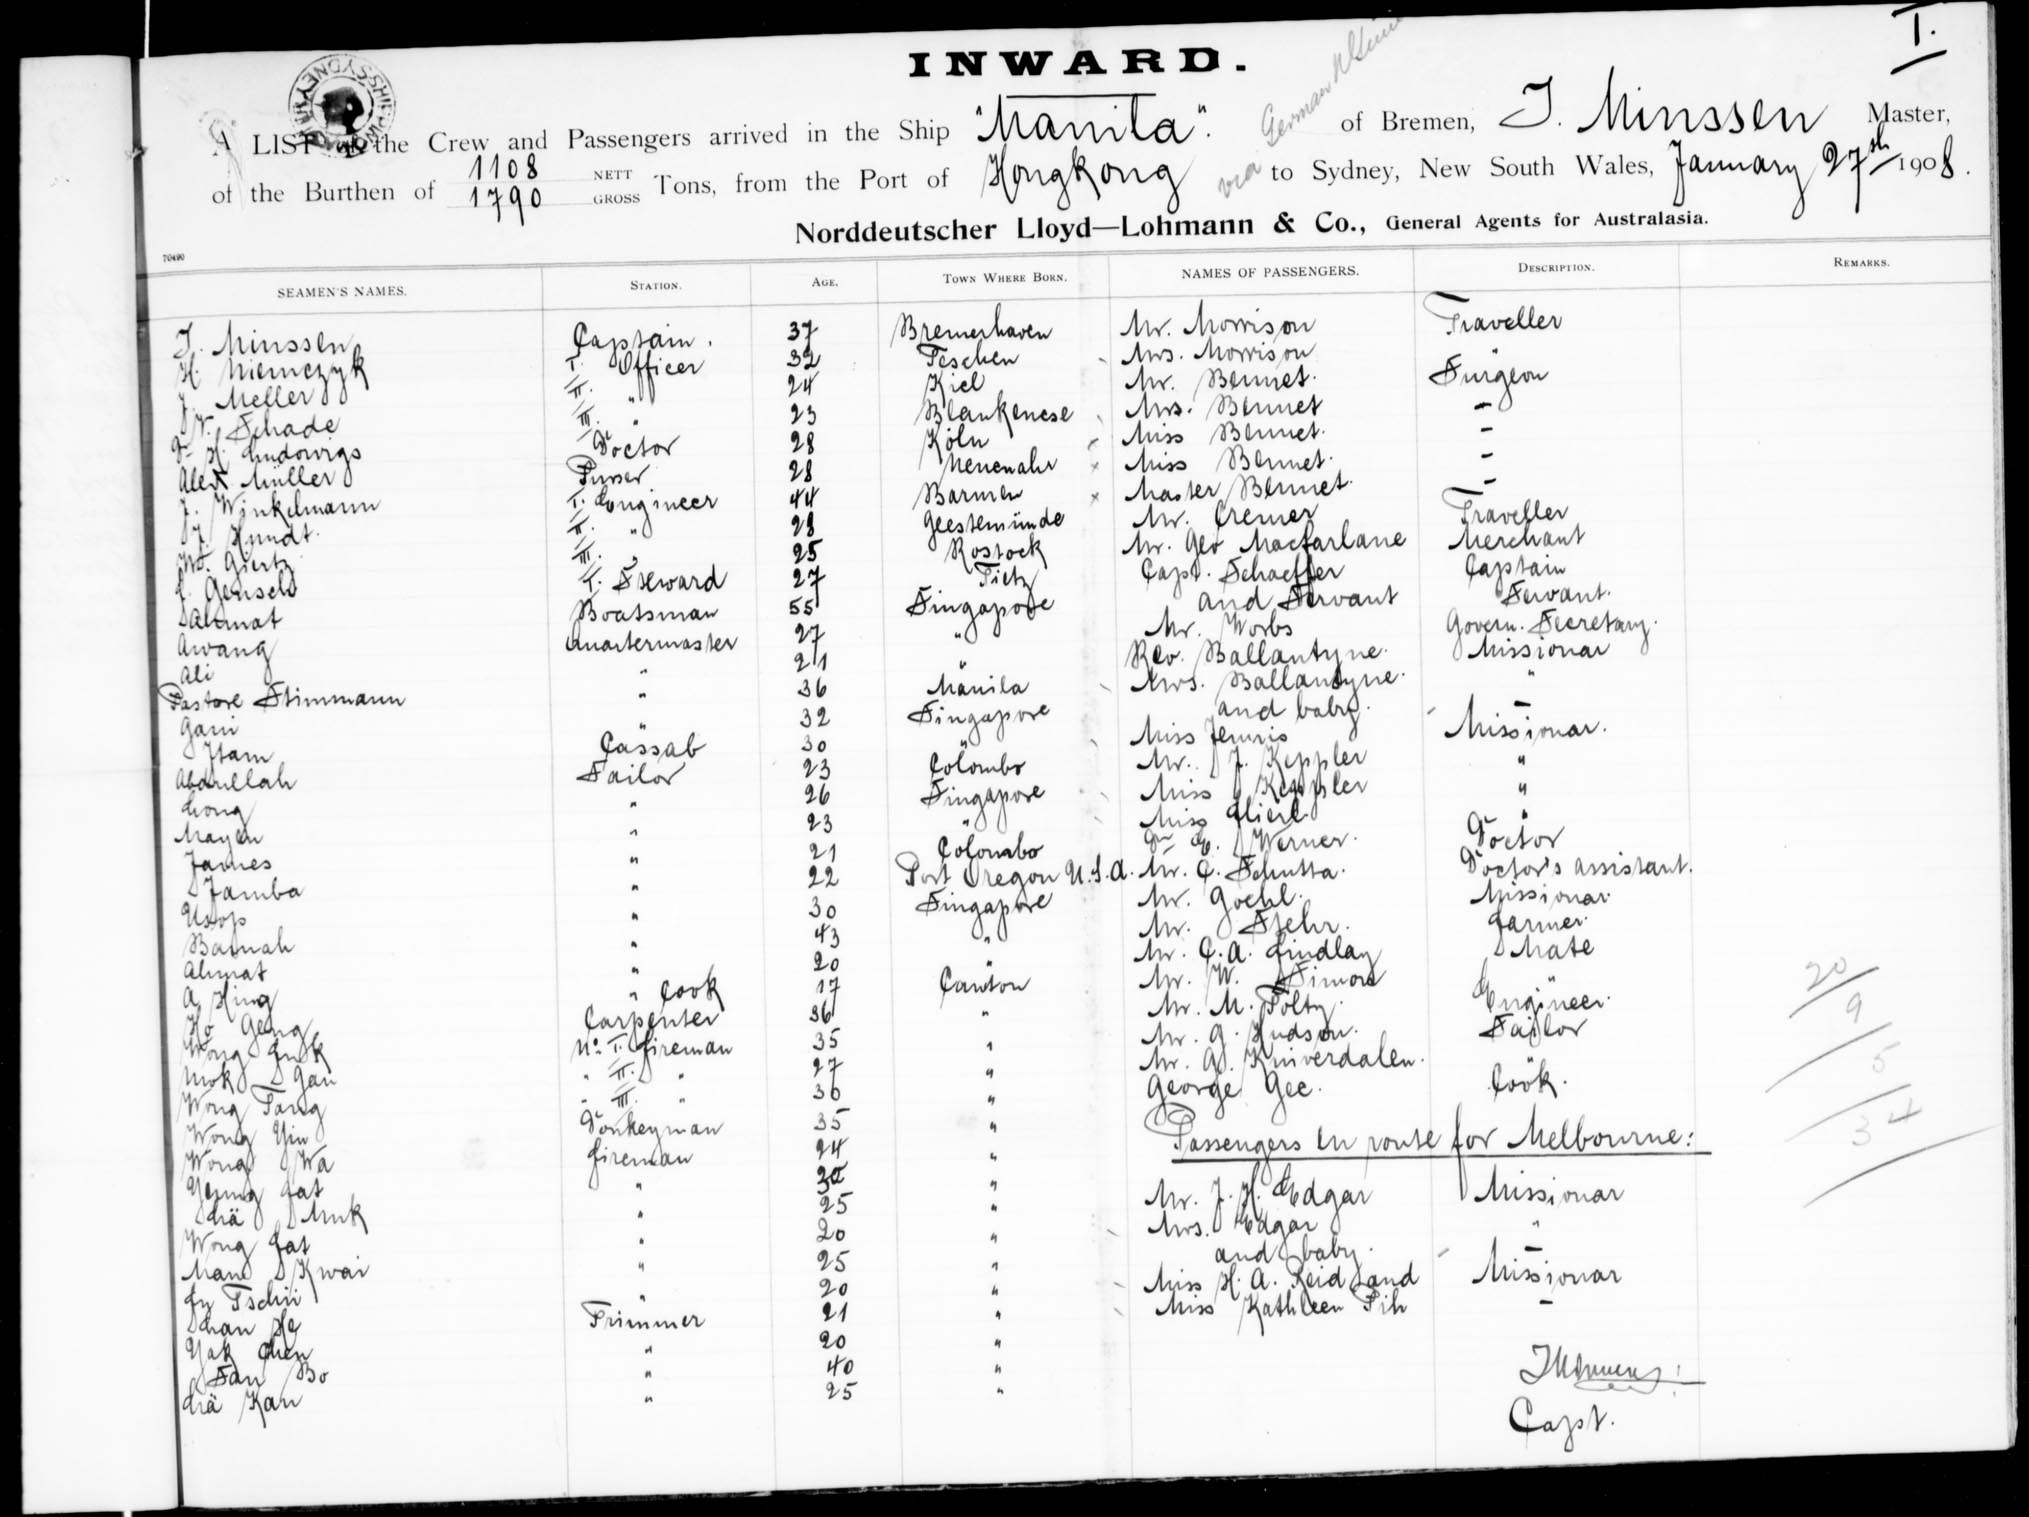 I.
INWARD.
A LIST of the Crew and Passengers arrived in the Ship "Manila". of Bremen, J. Minssen Master,
of the Burthen of 1108 NETT 1790 GROSS Tons, from the Port of Hongkong via German to Sydney, New South Wales, January 27th 1908.
Norddeutscher Lloyd—Lohmann & Co., General Agents for Australasia.
70490
SEAMEN'S NAMES. STATION. AGE. TOWN WHERE BORN. NAMES OF PASSENGERS. DESCRIPTION. REMARKS.
J. Minssen Captain. 37 Bremerhaven Mr. Morrison Traveller
H. Niemczyk I. Officer 32 Teschen Mrs. Morrison "
J. Meller II. " 24 Kiel Mr. Bennet. Surgeon
W. Schade III. " 23 Blankenese Mrs. Bennet -
Dr. H. Ludowigs Doctor 28 Köln Miss Bennet. -
Alex Müller Purser 28 Neuenahr Miss Bennet. -
J. Winkelmann I. Engineer 44 Barmen Master Bennet. -
J. Hundt. II. " 28 Geestemünde Mr. Cremer Traveller
W. Giertz III. " 25 Rostock Mr. Geo Macfarlane Merchant
I. Steward 27 Tietz Capt. Schaeffer Captain
Ahmat Boatsman 55 Singapore and Servant Servant.
Awang Quartermaster 27 " Mr. Worbs Govern. Secretary.
Ali " 21 " Rev. Ballantyne. Missionar
Pastore Stimmann " 36 Manila Mrs. Ballantyne. "
Gani " 32 Singapore and baby. -
Itam Cassab 30 " Miss Jennis Missionar.
Abdullah Sailor 23 Colombo Mr. J. Keppler "
Long " 26 Singapore Miss Keppler "
Mayen " 23 " Miss Flierl "
James " 21 Colombo Dr E. Werner. Doctor
Jamba " 22 Port Oregon U.S.A. Mr. C. Schutta. Doctor's assistant.
Usop " 30 Singapore Mr. Goehl. Missionar.
Bainah " 43 " Mr. Stehr. Farmer.
Ahmat " 20 " Mr. C. A. Findlay Mate
A Hing " Cook 17 Canton Mr. W. Simon "
Ho Geng Carpenter 36 " Mr. M. Polty. Engineer.
Wong Fuk No. I. Fireman 35 " Mr. G. Hudson. Sailor
Mok Gan " II. " 27 " Mr. A. Kniverdalen. "
Wong Tang " III. " 30 " George Gee. Cook.
Wong Yin Donkeyman 35 "
Passengers en route for Melbourne:
Wong Wa Fireman 24 "
Yeung Fat " 30 " Mr. J. H. Edgar Missionar
Liä Muk " 25 " Mrs. Edgar "
Wong Fat " 20 " and baby. -
Man Kwai " 25 " Miss H. A. Reid and Missionar
Ly Tschü " 20 " Miss Kathleen Pih -
Chan He Trimmer 21 "
Yak Chen " 20 "
San Bo " 40 "
Liä Kan " 25 "
20
9
5
34
JMinssen
Capt.